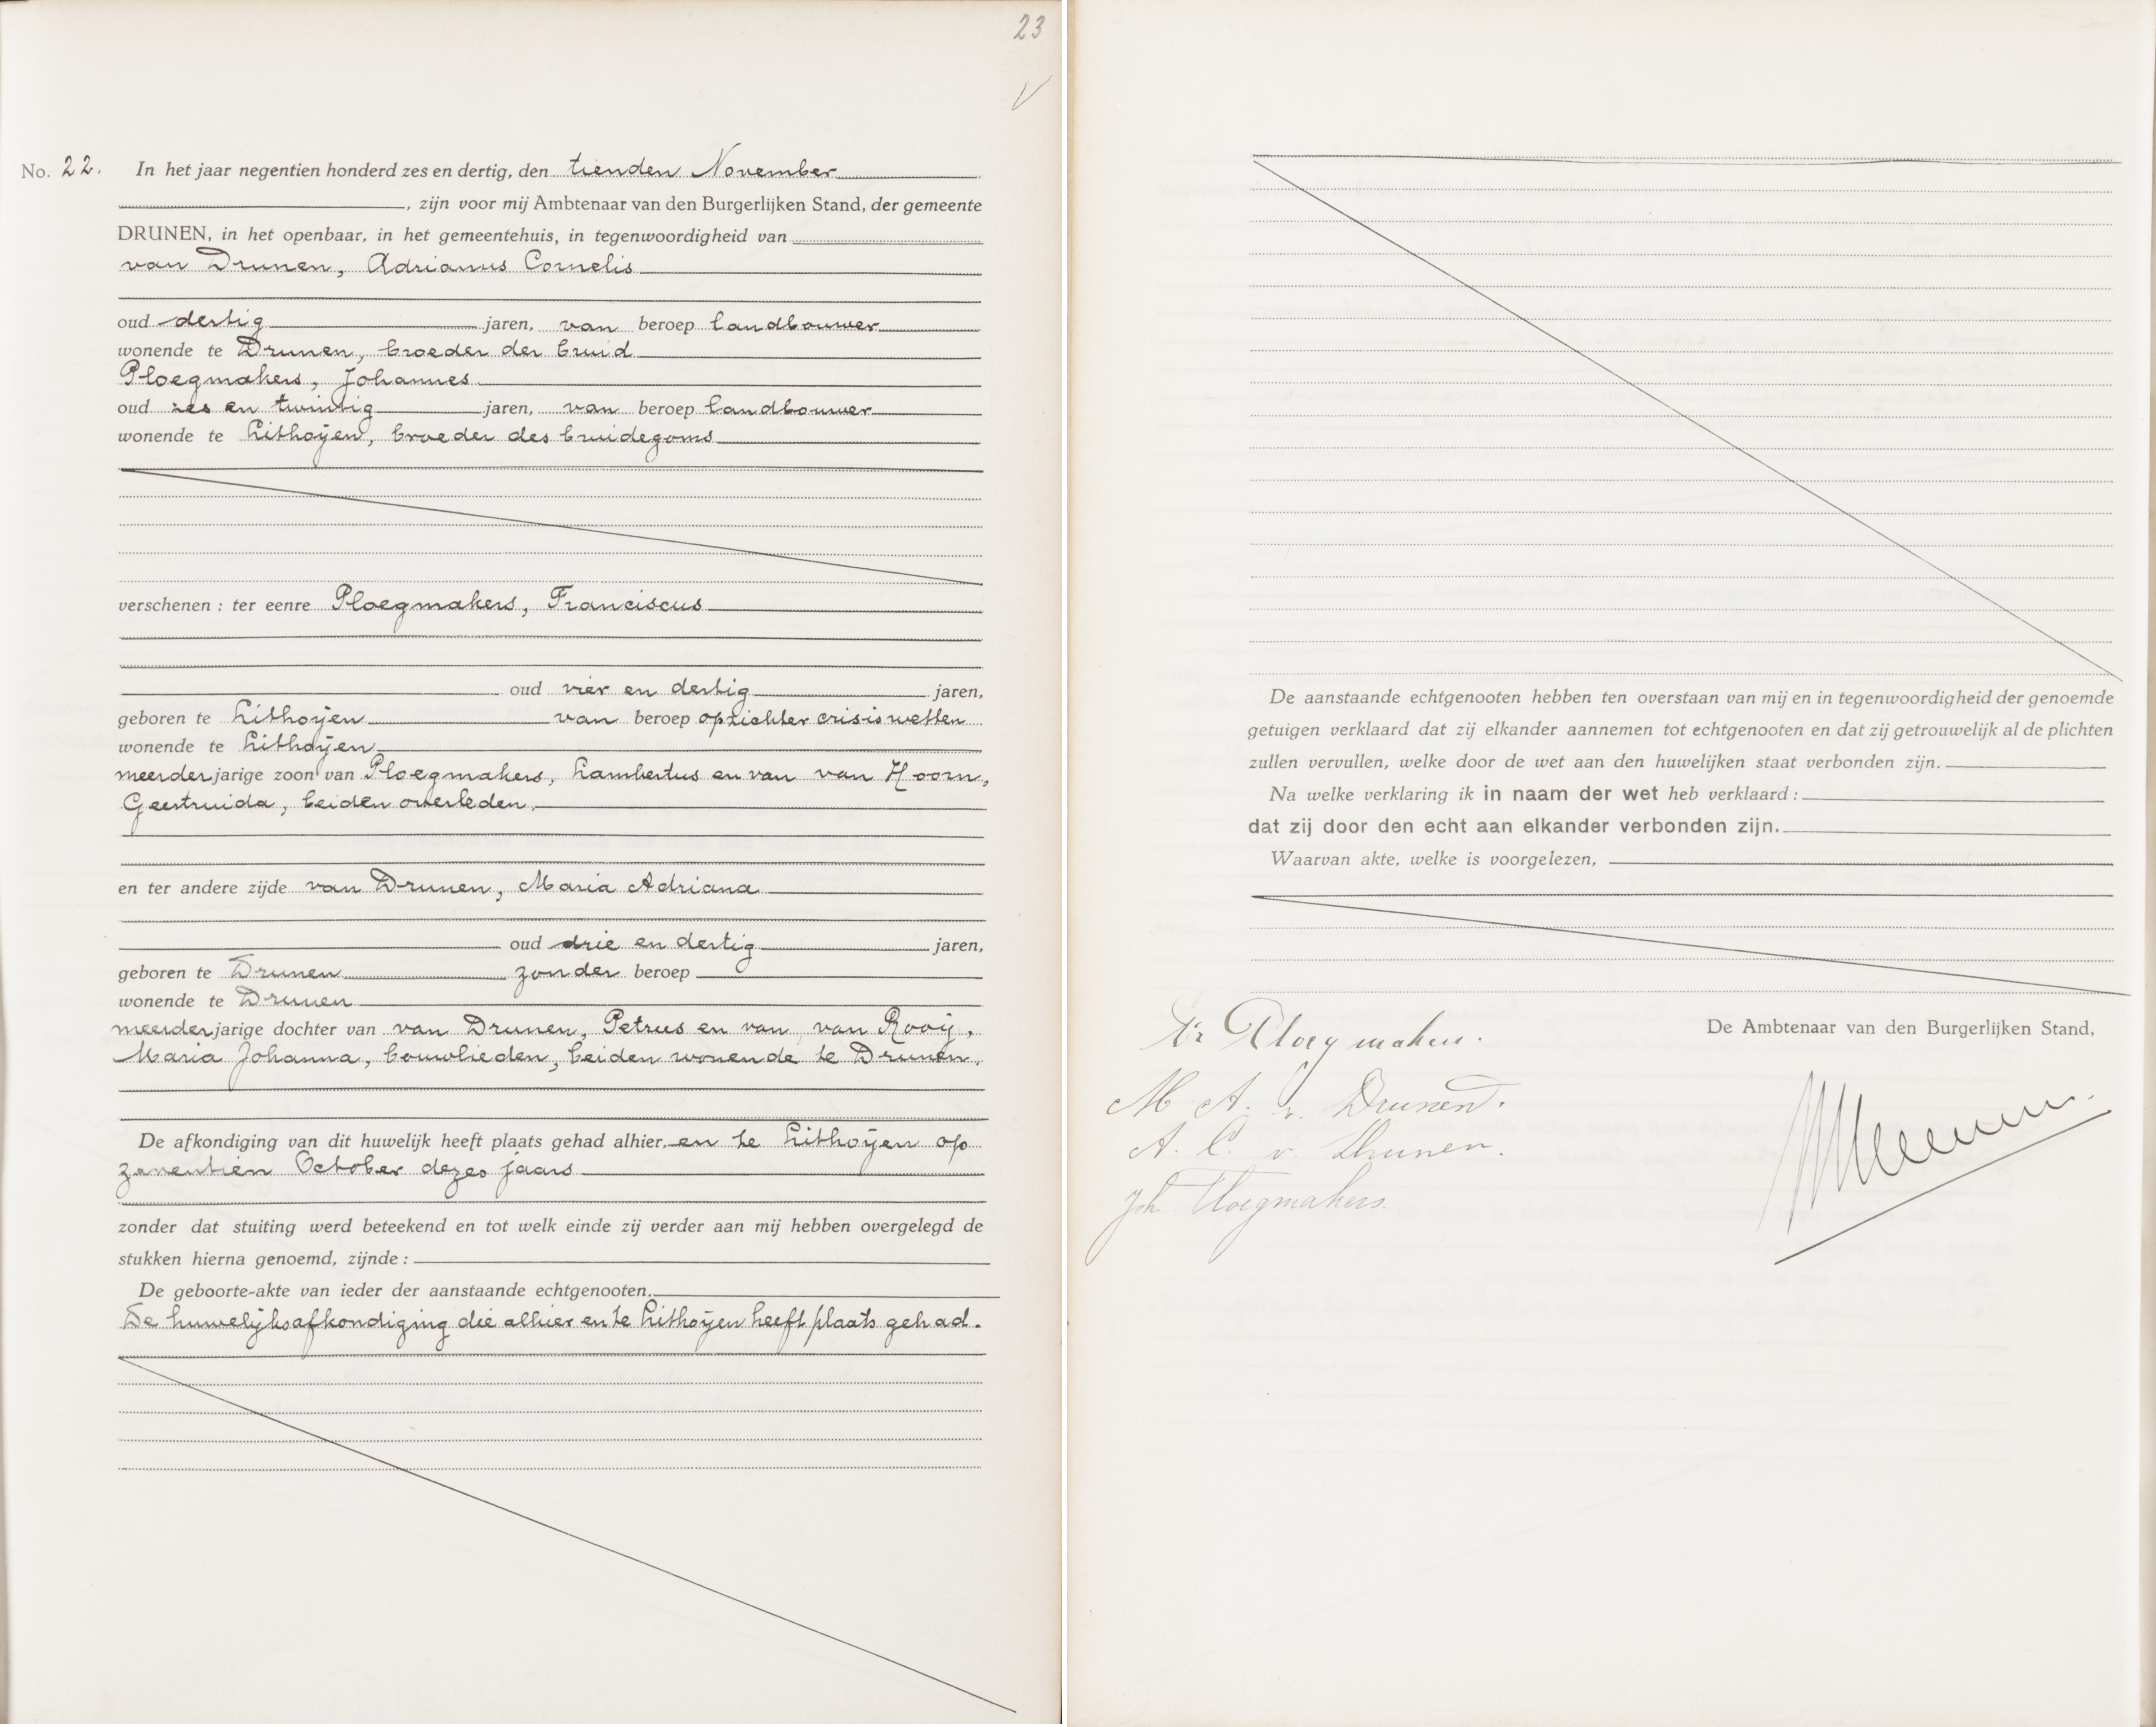 23
No. 22. In het jaar negentien honderd zes en dertig, den tienden November
, zijn voor mij Ambtenaar van den Burgerlijken Stand, der gemeente
DRUNEN, in het openbaar, in het gemeentehuis, in tegenwoordigheid van
van Drunen, Adrianus Cornelis
oud dertig jaren, van beroep landbouwer
wonende te Drunen, broeder der bruid
Ploegmakers, Johannes
oud zes en twintig jaren, van beroep landbouwer
wonende te Lithoijen, broeder des bruidegoms
verschenen : ter eenre Ploegmakers, Franciscus
oud vier en dertig jaren,
geboren te Lithoijen van beroep opzichter crisiswetten
wonende te Lithoijen
meerderjarige zoon van Ploegmakers, Lambertus en van van Hoorn,
Geertruida, beiden overleden.
en ter andere zijde van Drunen, Maria Adriana
oud drie en dertig jaren,
geboren te Drunen zonder beroep
wonende te Drunen
meerderjarige dochter van van Drunen, Petrus en van van Rooij,
Maria Johanna, bouwlieden, beiden wonende te Drunen.
De afkondiging van dit huwelijk heeft plaats gehad alhier, en te Lithoijen op
zeventien October dezes jaars
zonder dat stuiting werd beteekend en tot welk einde zij verder aan mij hebben overgelegd de
stukken hierna genoemd, zijnde :
De geboorte-akte van ieder der aanstaande echtgenooten.
De huwelijksafkondiging die alhier en te Lithoijen heeft plaats gehad.
De aanstaande echtgenooten hebben ten overstaan van mij en in tegenwoordigheid der genoemde
getuigen verklaard dat zij elkander aannemen tot echtgenooten en dat zij getrouwelijk al de plichten
zullen vervullen, welke door de wet aan den huwelijken staat verbonden zijn.
Na welke verklaring ik in naam der wet heb verklaard :
dat zij door den echt aan elkander verbonden zijn.
Waarvan akte, welke is voorgelezen,
De Ambtenaar van den Burgerlijken Stand,
Fr Ploegmakers.
M A. v. Drunen.
A. C. v. Drunen.
Joh. Ploegmakers.